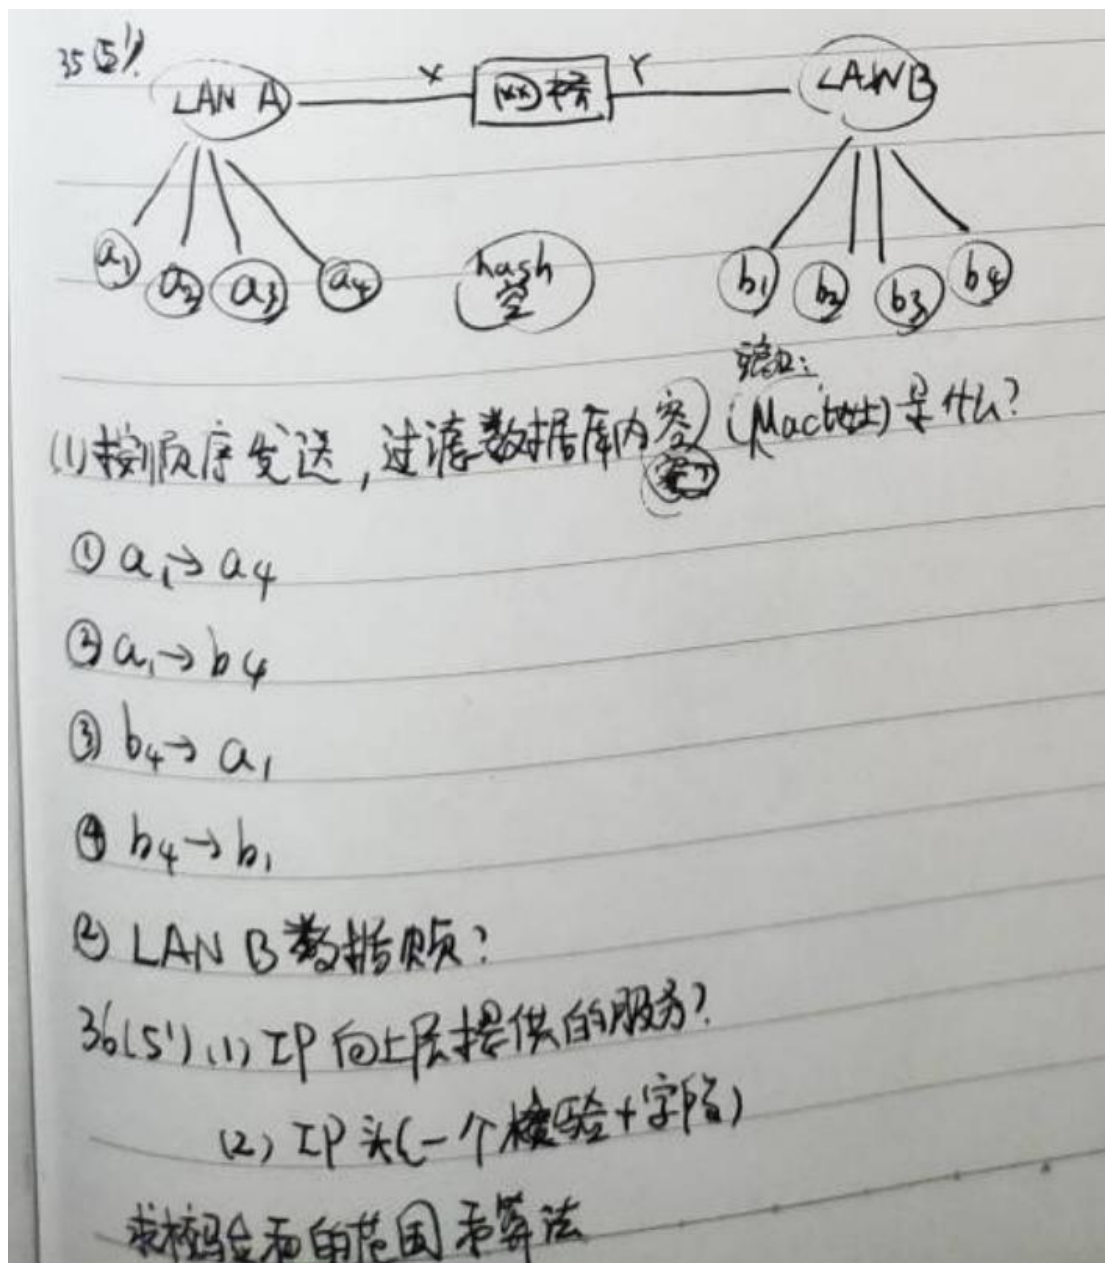 35 (5')
LAN A X 网桥 Y LAN B
a1 a2 a3 a4 hash b1 b2 b3 b4
空
端口:
(1)按顺序发送,过滤数据库内容(Mac地址)是什么?
① a1→a4
② a1→b4
③ b4→a1
④ b4→b1
② LAN B 数据帧?
36(5') (1) IP向上层提供的服务?
(2) IP头(一个检验+字段)
求校验和的范围和算法